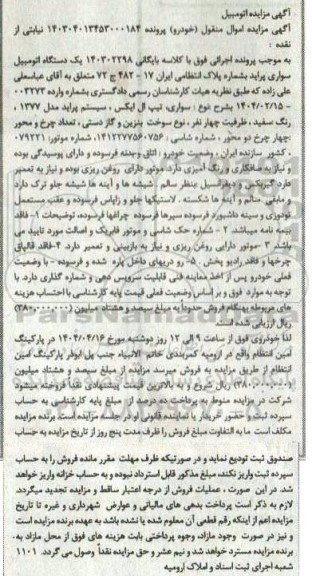 آگهی مزایده اتومبیل
آگهی مزایده اموال منقول (خودرو) پرونده ۱۴۰۳۰۴۰۱۳۴۵۳۰۰۰۱۸۴ نیابتی از
نقده :
به موجب پرونده اجرائی فوق با کلاسه بایگانی ۱۴۰۳۰۲۲۹۸ یک دستگاه اتومبیل
سواری پراید بشماره پلاک انتظامی ایران ۱۷ - ۴۸۲ ج ۷۲ متعلق به آقای عباسعلی
علی زاده که طبق نظریه هیات کارشناسان رسمی دادگستری بشماره وارده ۰۰۳۲۷۳
- ۱۴۰۴/۰۲/۱۵ بشرح نوع : سواری، تیپ ال ایکس ، سیستم پراید مدل ۱۳۷۷ ,
رنگ سفید ، ظرفیت چهار نفر ، نوع سوخت بنزین و گاز دستی ، تعداد چرخ و محور
:چهار چرخ دو محور ، شماره شاسی : ۱۴۱۲۲۷۷۵۶۰۷۵۶ ، شماره موتور: ۰۷۹۲۲۱
، کشور سازنده ایران ، وضعیت خودرو : اتاق وبدنه فرسوده و دارای پوسیدگی بوده
و نیاز به صافکاری و رنگ آمیزی دارد. موتور دارای روغن ریزی بوده و نیاز به تعمیر
دارد. گیربکس و دیفرانسیل بنظر سالم . شیشه ها و آینه ها شیشه جلو ترک دارد
و مابقی سالم و آینه ها شکسته . لاستیکها جلو و زاپاس فرسوده و عقب مستعمل
تودوزی و سینه داشبورد فرسوده سپرها فرسوده چراغها فرسوده، توضیحات ۱- فاقد
بیمه نامه میباشد. ۲ - شماره حک شاسی و موتور فابریک و اصالت مورد تایید می
باشد. ۳ -موتور دارایی روغن ریزی و نیاز به بازبینی و تعمیر دارد. ۴-فاقد قالپاق
چرخها و فاقد رادیو پخش . ۵- رو دریهای داخل پاره شده و فرسوده - با وضعیت
فعلی خودرو پس از اخذ معاینه فنی قابلیت سرویس دهی و شماره گذاری دارد. با
توجه به موارد فوق و بر اساس وضعیت فعلی قیمت پایه کارشناسی با احتساب هزینه
های مربوطه بهنگام فروش حدودا به مبلغ سیصد و هشتاد میلیون (۳۸۰,۰۰۰,۰۰۰)
ریال ارزیابی شده است.
لذا خودروی فوق از ساعت ۹ الی ۱۲ روز دوشنبه مورخ ۱۴۰۴/۰۴/۱۶ در پارکینگ
آمین انتظام واقع در ارومیه کمربندی خاتم الانبیاء جنب پل ابوذر پارکینگ امین
انتظام از طریق مزایده به فروش میرسد مزایده از مبلغ سیصد و هشتاد میلیون
(۳۸۰,۰۰۰,۰۰۰) ریال شروع و به بالاترین قیمت پیشنهادی نقدا فروخته میشود
شرکت در مزایده منوط به پرداخت ده درصد از مبلغ پایه کارشناسی به حساب
سپرده ثبت و حضور خریدار یا نماینده قانونی او در جلسه مزایده است. برنده مزایده
مکلف است ما به التفاوت مبلغ فروش را ظرف مدت پنج روز از تاریخ مزایده به حساب
صندوق ثبت تودیع نماید و در صورتیکه ظرف مهلت مقرر مانده فروش را به حساب
سپرده ثبت واریز نکند، مبلغ مذکور قابل استرداد نبوده و به حساب خزانه واریز خواهد
شد. در این صورت ، عملیات فروش از درجه اعتبار ساقط و مزایده تجدید میگردد.
لازم به ذکر است پرداخت بدهی های مالیاتی و عوارض شهرداری و غیره تا تاریخ
مزایده اعم از اینکه رقم قطعی آن معلوم شده یا نشده باشد به عهده برنده مزایده است
و نیز در صورت وجود مازاد، وجوه پرداختی بابت هزینه های فوق از محل مازاد به
برنده مزایده مسترد خواهد شد و نیم عشر و حق مزایده نقداً وصول می گردد. ۱۱۰۱
شعبه اجرای ثبت اسناد و املاک ارومیه